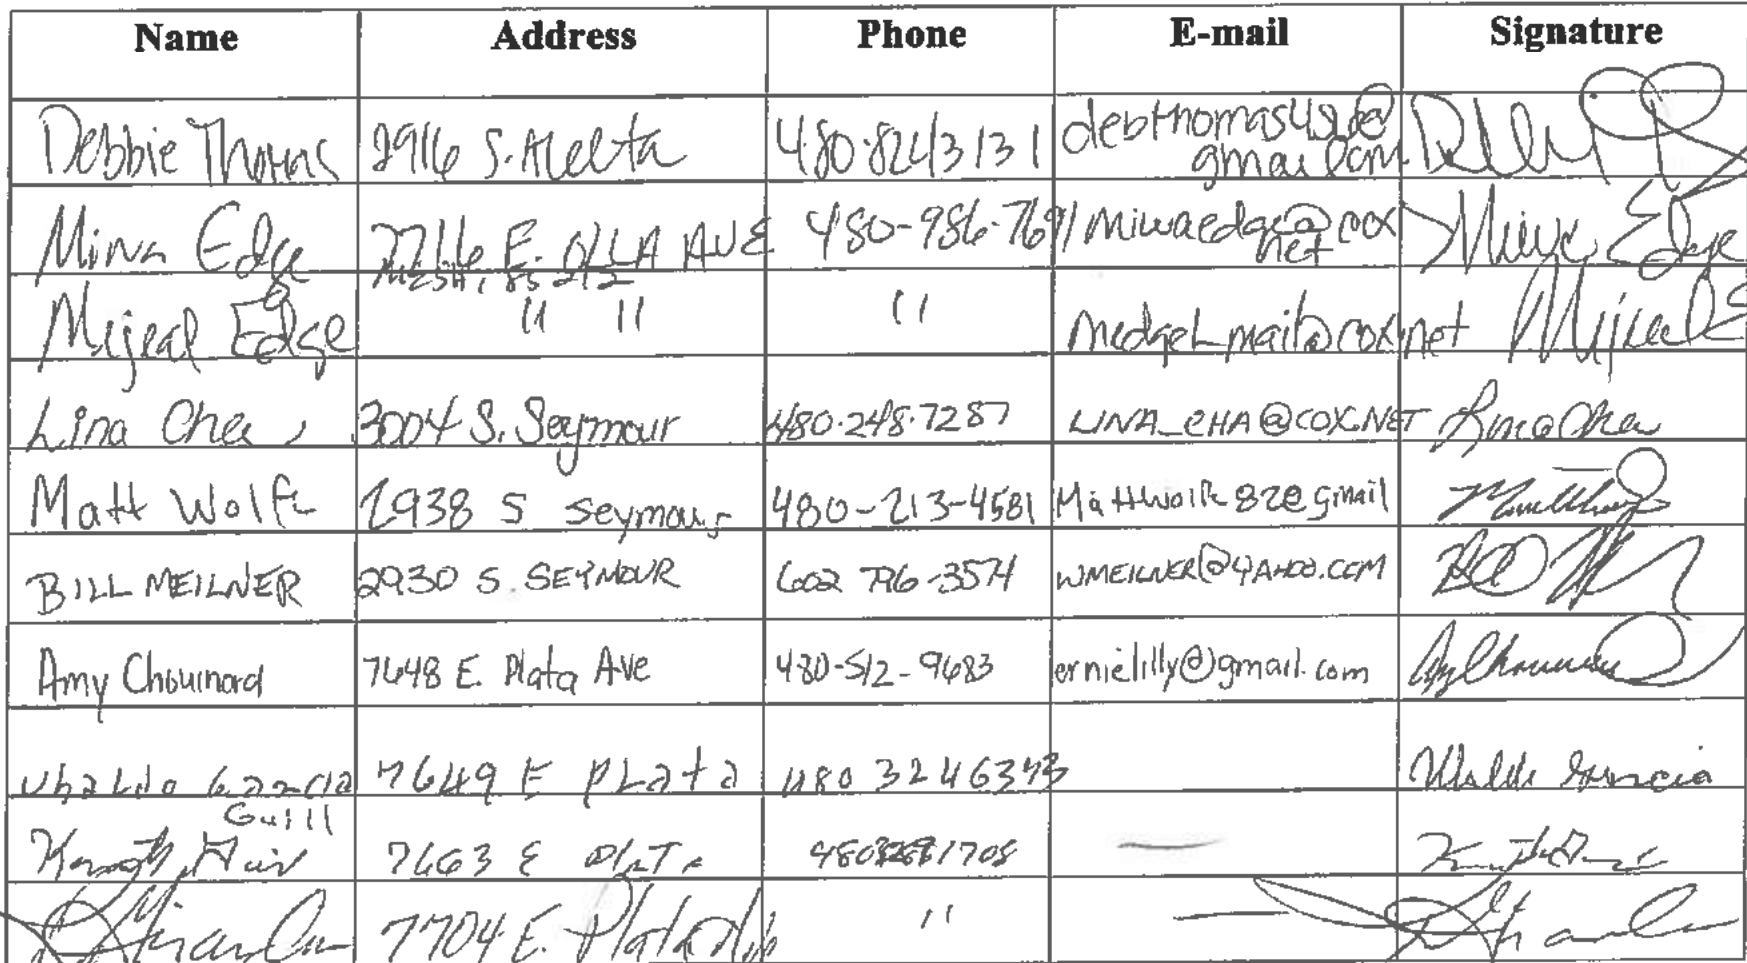 Name Address Phone E-mail Signature
Debbie Thomas 2916 S. 480·8243131 debthomas
gmail.com
Mina Edge 2716 E. OLLA AVE 480-986-7691 miwaedge@cox Edge
MESA, 85212 net
Mijeal Edge " " " medgeLmail@cox.net
Lina Cha 3004 S. Seymour 480·248·7287 LINA_CHA@COX.NET Lina Cha
Matt Wolfe 2938 S Seymour 480-213-4581 Mattwolfe82@gmail
BILL MEILNER 2930 S. SEYMOUR 602 796-3574 WMEILNER@YAHOO.COM
Amy Chouinard 7648 E. Plata Ave 480-512-9683 ernielilly@gmail.com
Ubaldo Garcia 7649 E PLata 480 3246373 Garcia
Guill
7663 E Plata —
7704 E. Plata " —